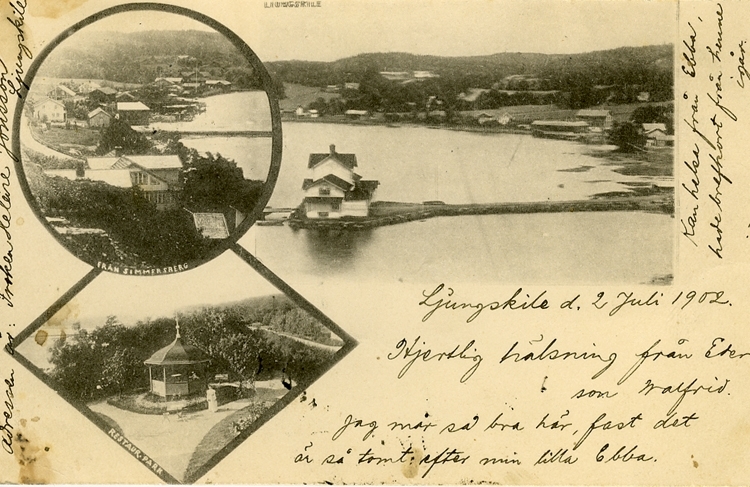 LJUNGSKILE
FRÅN SIMMERSBERG
RESTAUR. PARK
Ljungskile d. 2 Juli 1902.
Hjertlig hälsning från Eder
son Walfrid.
Jag mår så bra här, fast det
är så tomt efter min lilla Ebba.
Kan helsa från Ebba,
hade brefkort från henne
igår.
Adressen är: Fröken Helare Jonsson
Ljungskile